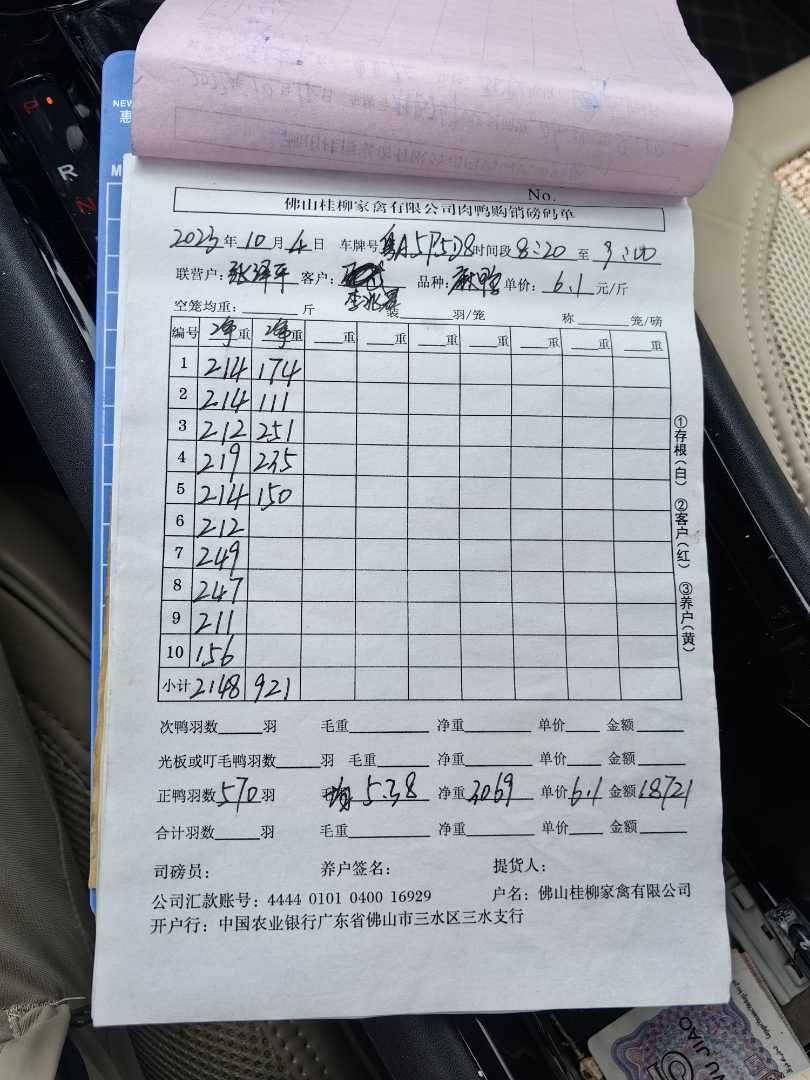 No.
佛山桂柳家禽有限公司肉鸭购销磅码单
2023年10月4日 车牌号 粤A5P5D8 时间段 8:20 至 9:00
联营户: 张泽平 客户: 李兆 品种: 麻鸭 单价: 6.1 元/斤
空笼均重: 斤 装 羽/笼 称 笼/磅
编号 净重 净重 重 重 重 重 重 重 重
1 214 174
2 214 111
3 212 251
4 219 235
5 214 150
6 212
7 249
8 247
9 211
10 156
小计 2148 921
①存根(白) ②客户(红) ③养户(黄)
次鸭羽数 羽 毛重 净重 单价 金额
光板或叮毛鸭羽数 羽 毛重 净重 单价 金额
正鸭羽数 570 羽 均 5.38 净重 3069 单价 6.1 金额 18721
合计羽数 羽 毛重 净重 单价 金额
司磅员: 养户签名: 提货人:
公司汇款账号: 4444 0101 0400 16929 户名: 佛山桂柳家禽有限公司
开户行: 中国农业银行广东省佛山市三水区三水支行
P
R
N
NEW
惠
M